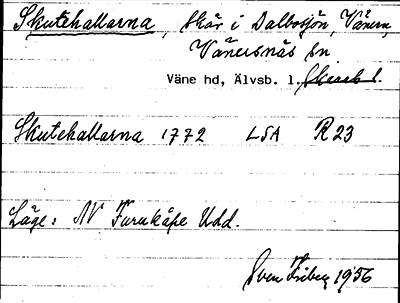 Skutehallarna, skär i Dalbosjön, Vänern,
Vänersnäs sn
Väne hd, Älvsb. l.
Skutehallarna 1772 LSA R23
Läge: NV Furukåpe Udd.
Sven Friberg 1956